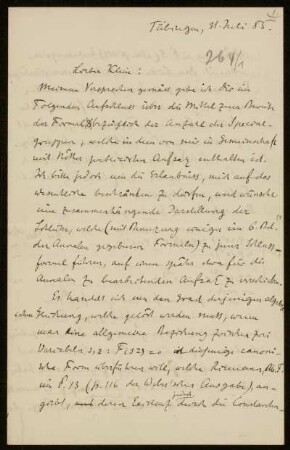 Tübingen, 31. Juli 85.
264/1
Lieber Klein:
Meinem Versprechen gemäss gebe ich Dir im
Folgenden Aufschluss über die Mittel zum Beweise
der Formel bezüglich der Anzahl der Special-
gruppen, welche in dem von mir in Gemeinschaft
mit Nöther publicirten Aufsatz enthalten ist.
Ich bitte jedoch um die Erlaubniss, mich auf das
wesentliche beschränken zu dürfen, und wünsche
eine zusammenhängende Darstellung der
Schlüsse, welche (mit Benutzung einiger im 6. Bd.
der Annalen gegebenen Formeln) zu jener Schluss-
formel führen, auf einen später von für die
Annalen zu bearbeitenden Aufsatz zu verschieben.
Es handelt sich um den Grad derjenigen algebra-
ischen Gleichung, welche gelöst werden muss, wenn
man eine allgemeine Beziehung zwischen zwei
Variabeln s, z: F(s, z) = 0 in diejenige canoni-
sche Form überführen will, welche Riemann,
in § 13 (p. 116 der Weber'schen Ausgabe), an-
giebt, deren Existenz durch die Constanten-